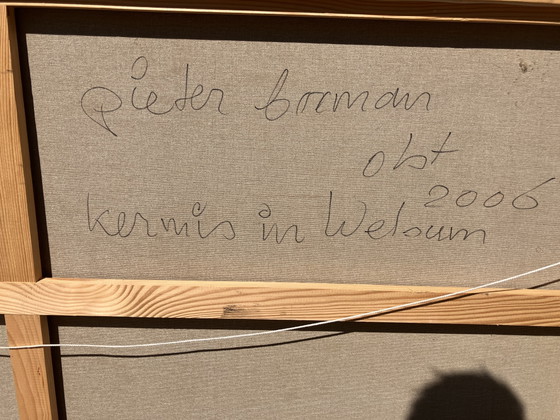 Pieter breman
okt
2006
kermis in Welsum